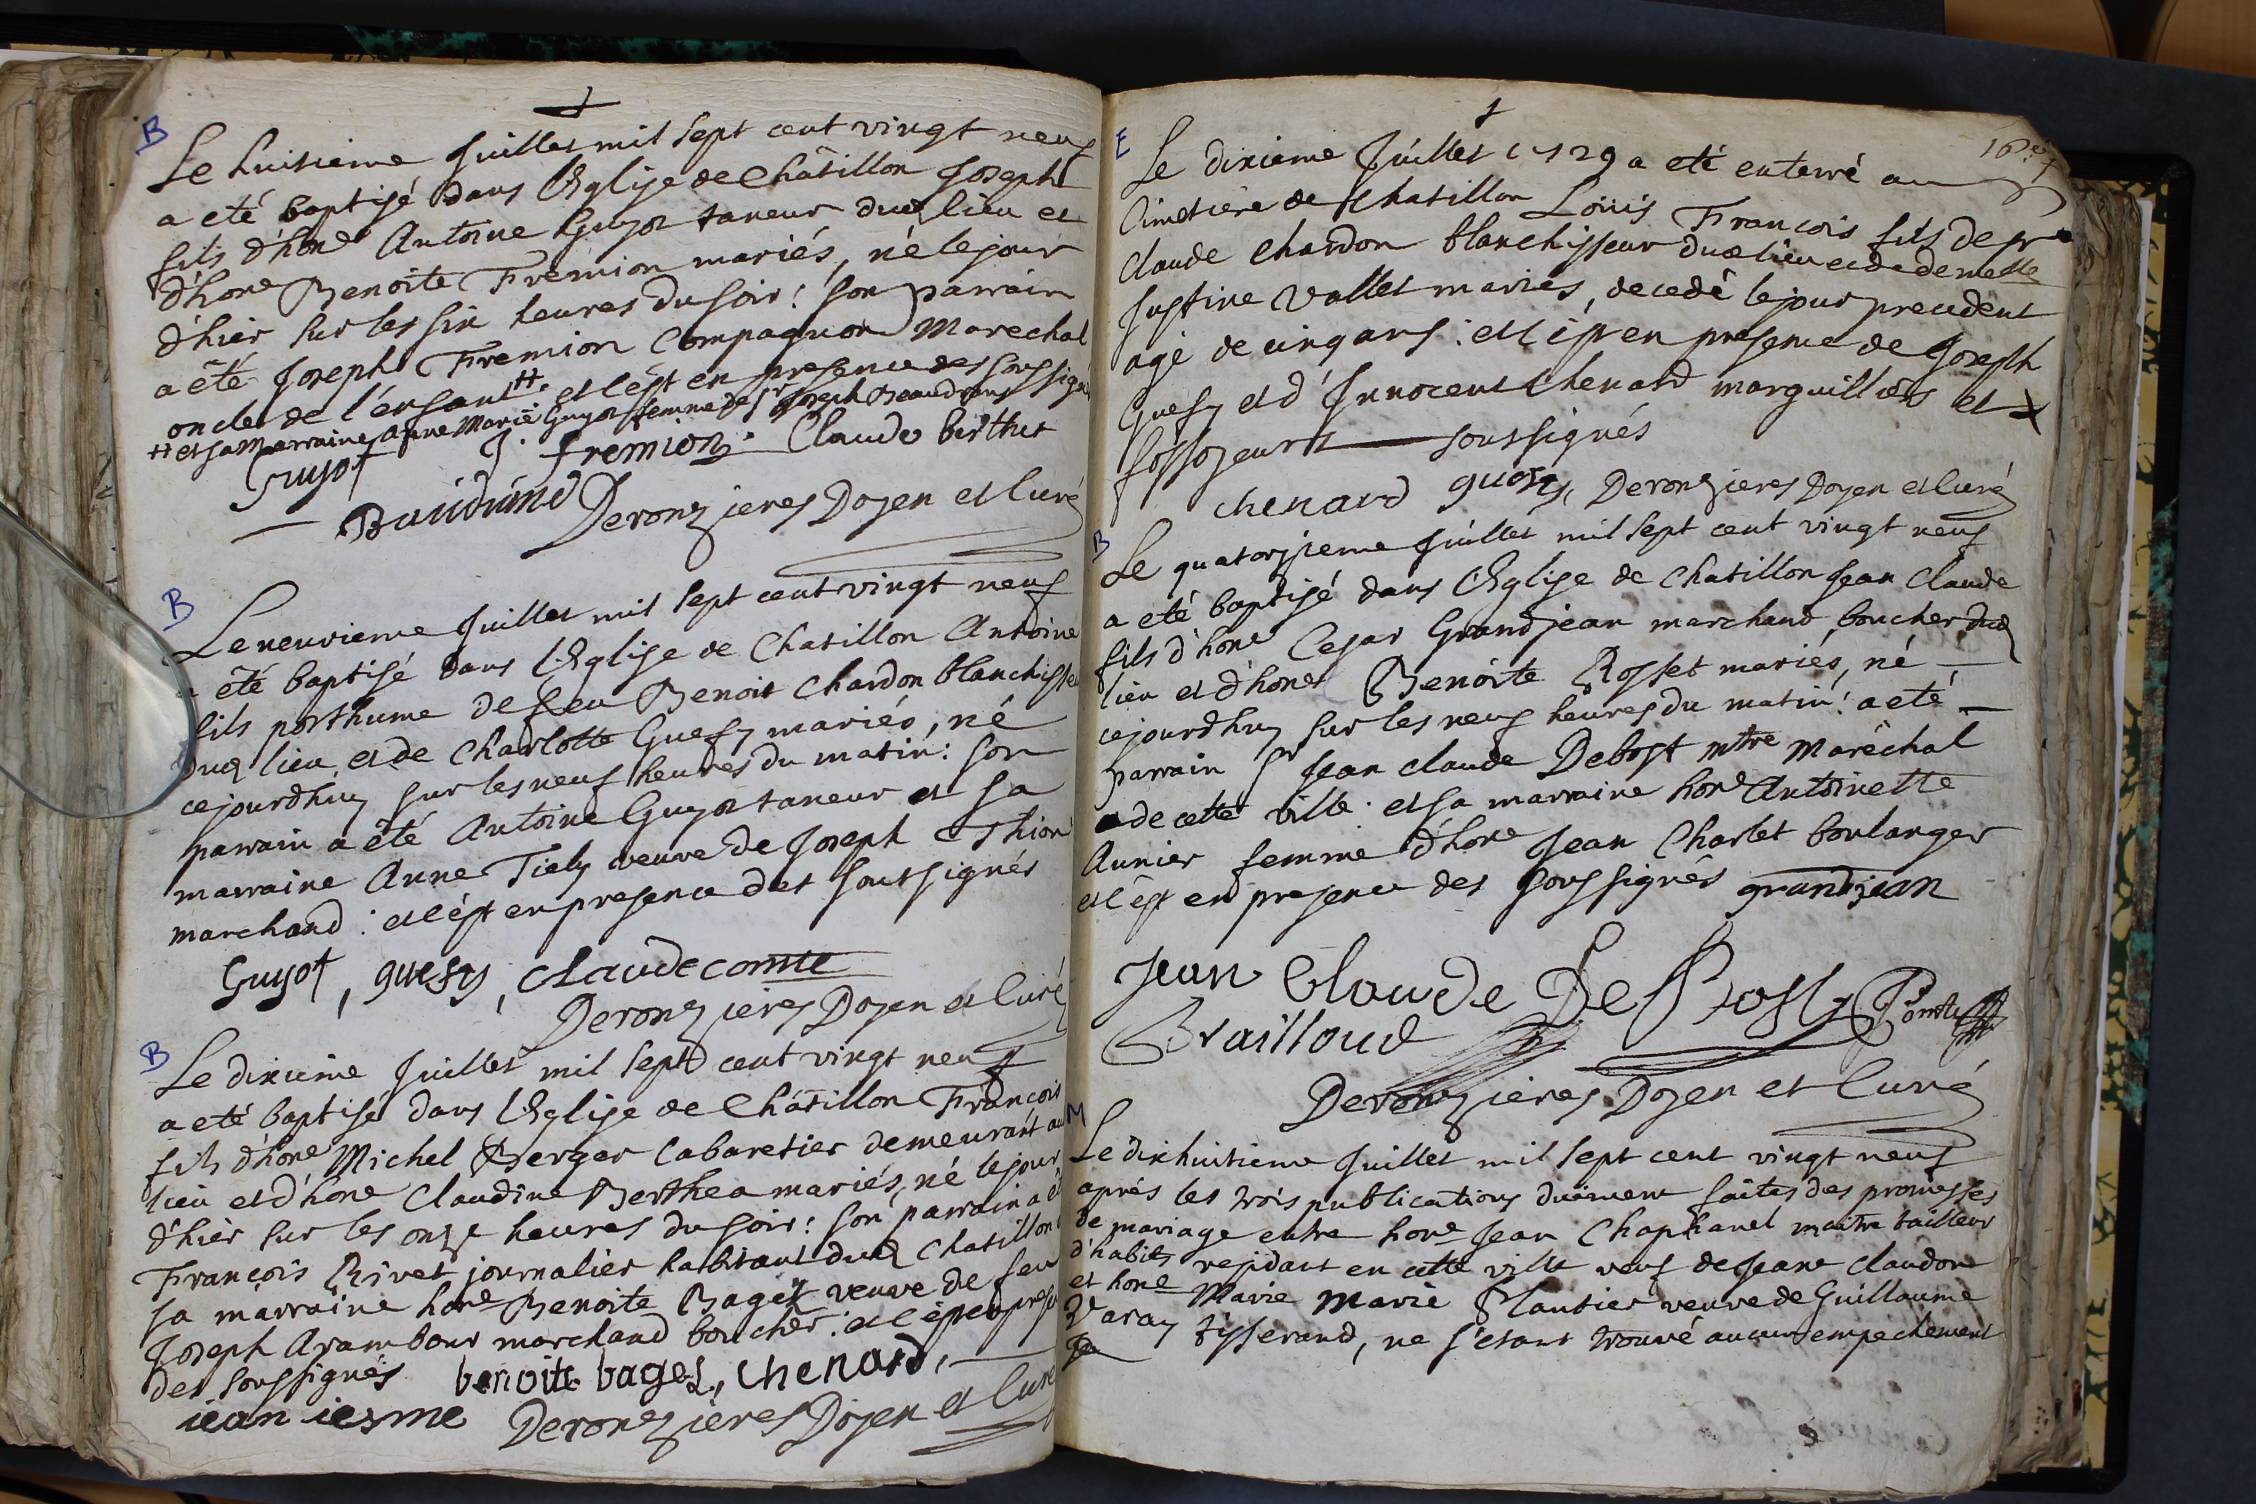 B
Le huitieme Juillet mil sept cent vingt neuf
a eté baptisé dans l'Eglise de Châtillon Joseph
fils d'hone Antoine Guyot taneur dud lieu et
d'hone Benoite Fremion mariés, né le jour
d'hier sur les six heures du soir: son parrain
a été Joseph Fremion Compagnon Marechal
oncle de l'enfant ++. et c'est en presence des soussignés
++ et sa Marraine anne Marie Guyot femme de sr Joseph Beaudrand
Guyot J. fremion. Claude berthet
Baudrand Deronzieres Doyen et Curé
B
Le neuvieme Juillet mil sept cent vingt neuf
a été baptisé dans l'Eglise de Chatillon Antoine
fils posthume de feu Benoit Chardon blanchisseu
dud lieu, et de Charlotte Guefy mariés, né
cejourdhuy sur les neuf heures du matin: son
parrain a été Antoine Guyot taneur et sa
marraine Anne Tiely veuve de Joseph Thion
marchand: et c'est en presence des soussignés
Guyot, guefy, Claude comte
Deronzieres Doyen et Curé
B
Le dixieme Juillet mil sept cent vingt neuf
a eté baptisé dans l'Eglise de Châtillon François
fils d'hone Michel Berger Cabaretier demeurant aud
lieu et d'hone Claudine Berthea mariés, né le jour
d'hier sur les onze heures du soir: son parrain a été
François Rivet journalier habitant dud Chatillon
sa marraine hone Benoite Baget veuve de feu
Joseph Arambour marchand boucher: et c'est en prese
des soussignés benoite baget, chenard,
iean iesme Deronzieres Doyen et Curé
E
Le dixieme Juillet 1729 a eté enterré au
Cimetiere de Chatillon Loüis François fils de sr
Claude Chardon blanchisseur dud lieu et de demelle
Justine Vallet mariés, decedé le jour precedent
agé de cinq ans: et c'est en presence de Joseph
Guefy et d'Innocent Chenard marguilliers et
fossoyeurs soussignés
chenard guefy, Deronzieres Doyen et Curé
B
Le quatorzieme Juillet mil sept cent vingt neuf
a eté baptisé dans l'Eglise de Chatillon Jean Claude
fils d'hone Cesar Grandjean marchand boucher dud
lieu et d'hone Benoite Rosset mariés, né
cejourdhuy sur les neuf heures du matin: a eté
parrain sr Jean Claude Debost mtre Maréchal
de cette ville: et sa marraine hone Antoinette
Aunier femme d'hone Jean Charlet boulanger
et c'est en presence des soussignés grandjean
Jean Claude De Bost Comte
Brailloud
Deronzieres Doyen et Curé
M
Le dixhuitieme Juillet mil sept cent vingt neuf
aprés les trois publications duëment faites des promesses
de mariage entre hone Jean Chaphanel maitre tailleur
d'habits residant en cette ville veuf de Jeane Claudon
et hone Marie Marie Plantier veuve de Guillaume
Varay tisserand, ne s'etant trouvé aucun empechement